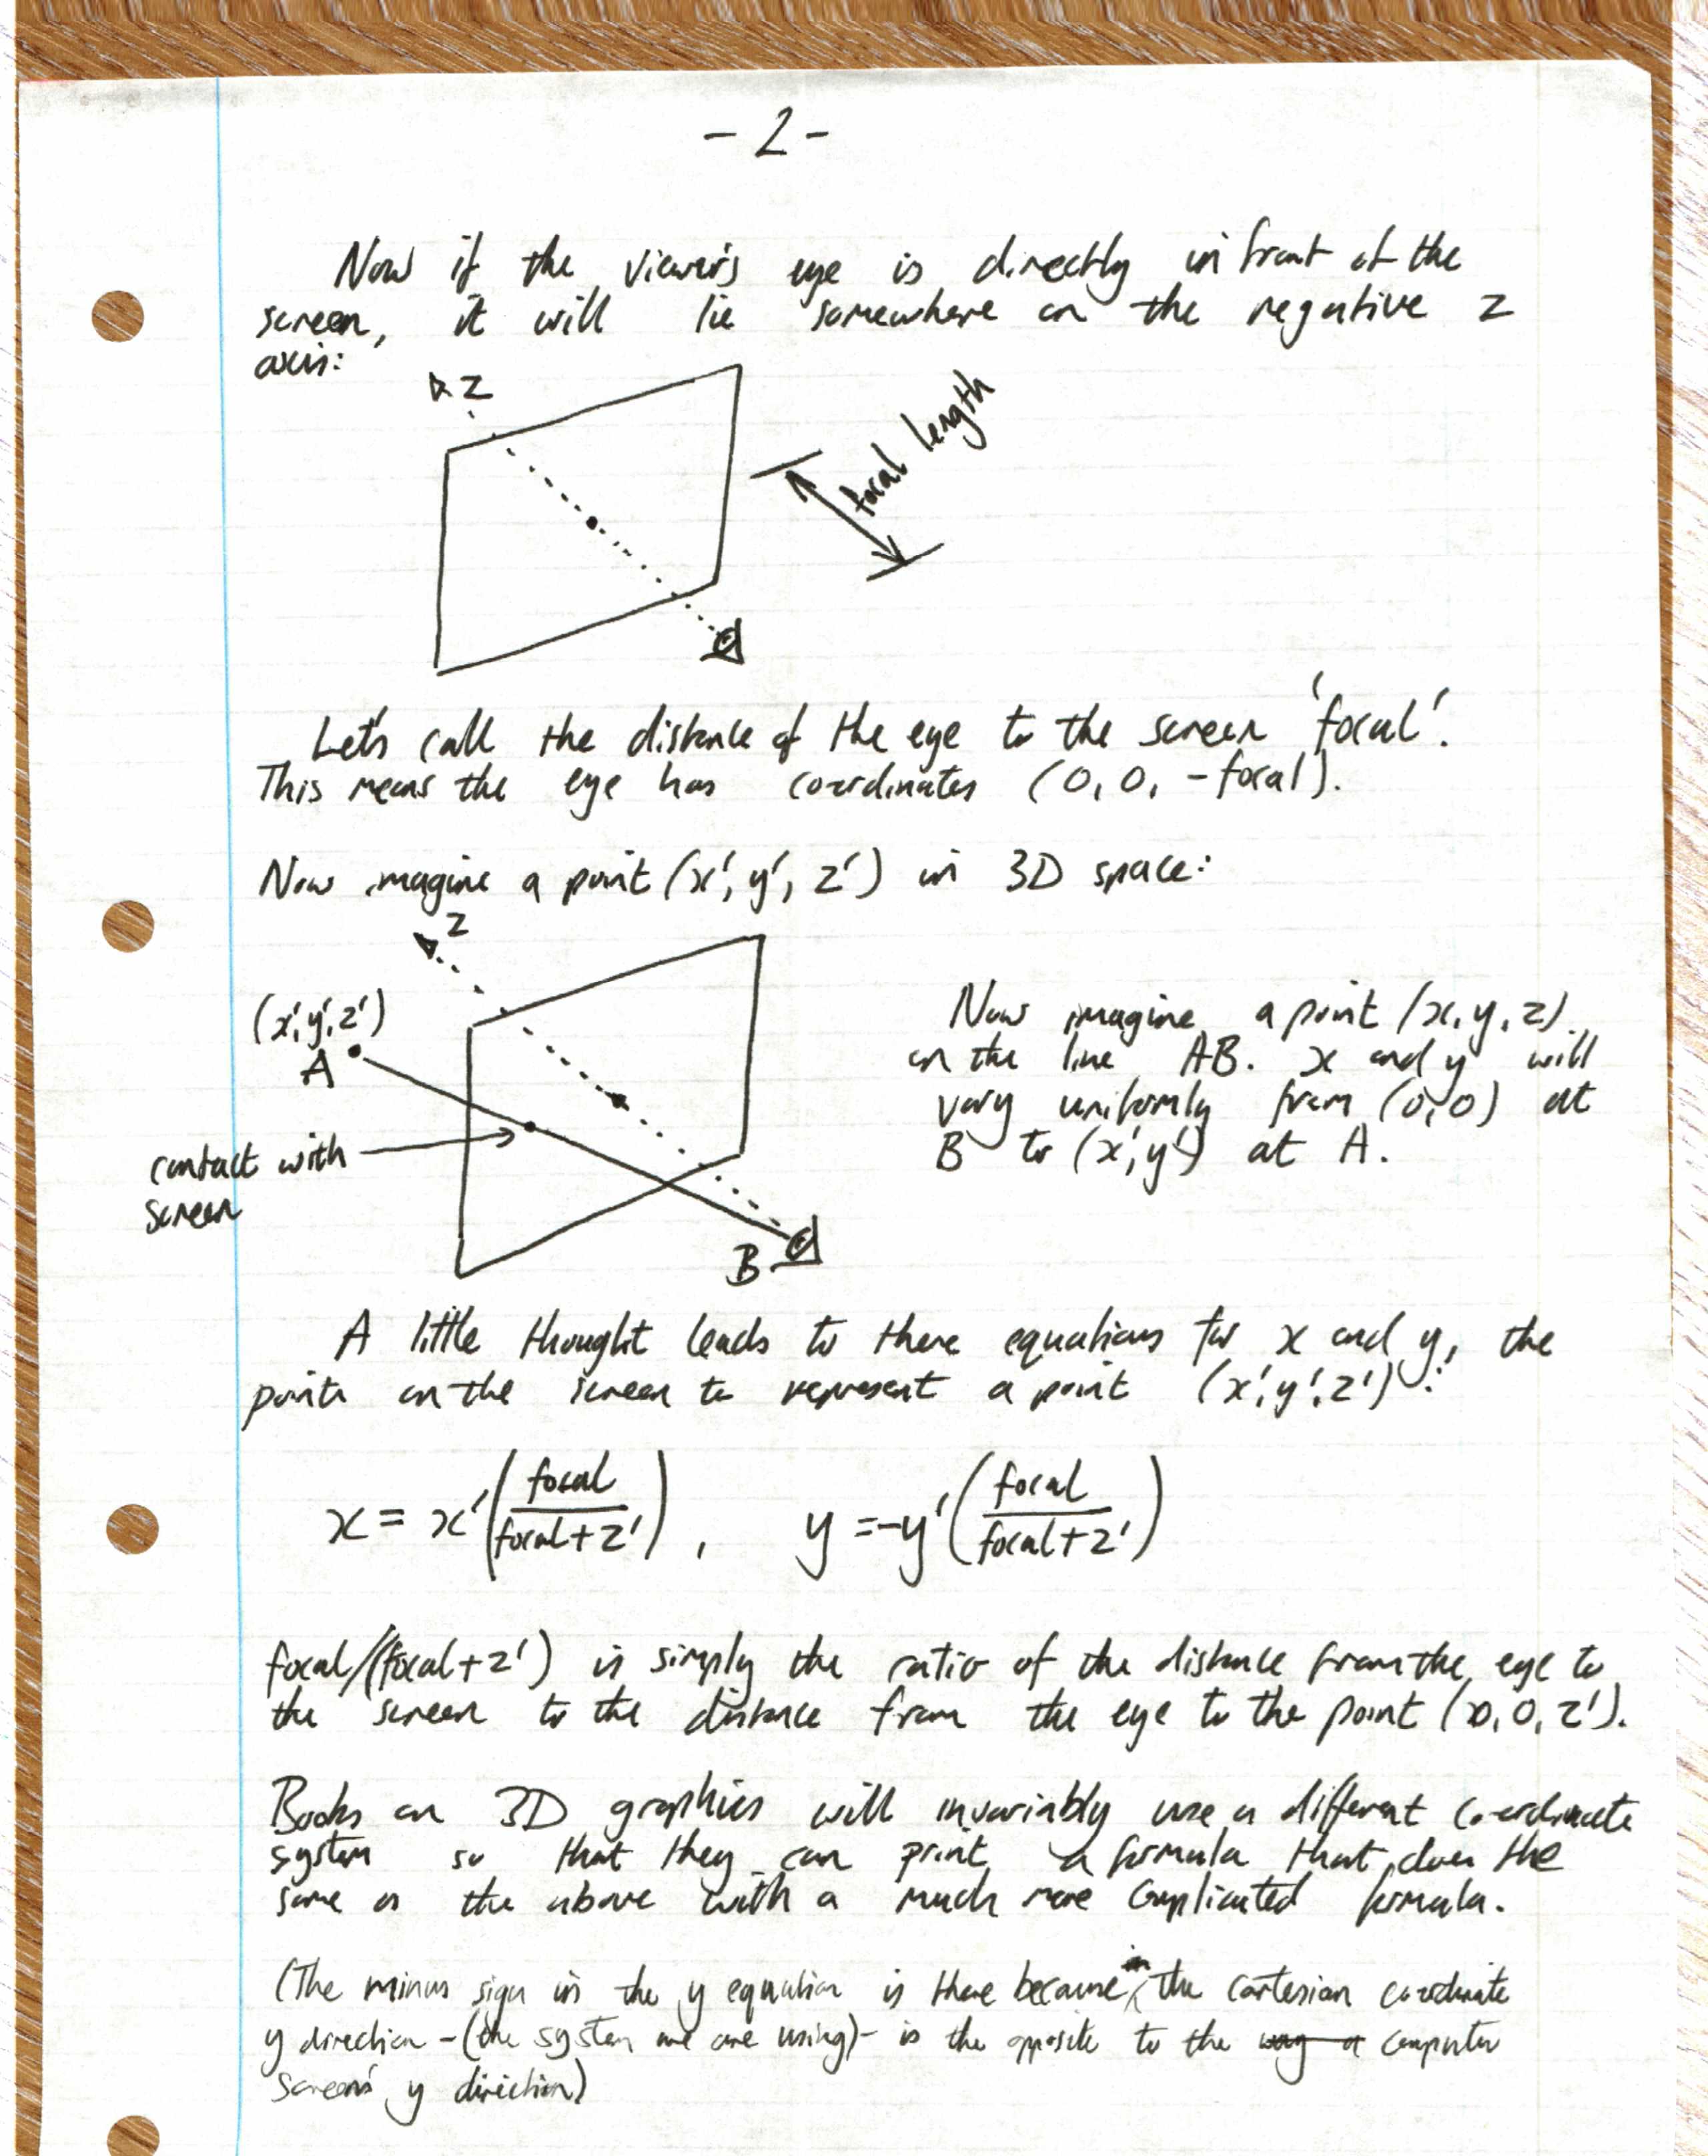 - 2 -
Now if the viewer's eye is directly in front of the
screen, it will lie somewhere on the negative z
axis:
z
focal length
Let's call the distance of the eye to the screen 'focal'.
This means the eye has coordinates (0, 0, -focal).
Now imagine a point (x', y', z') in 3D space:
z
(x', y', z')
A
contact with
screen
B
Now imagine a point (x, y, z)
on the line AB. x and y will
vary uniformly from (0,0) at
B to (x', y') at A.
A little thought leads to these equations for x and y, the
points on the screen to represent a point (x', y', z'):
x = x' (focal / focal + z') , y = -y' (focal / focal + z')
focal/(focal + z') is simply the ratio of the distance from the eye to
the screen to the distance from the eye to the point (0, 0, z').
Books on 3D graphics will invariably use a different coordinate
system so that they can print a formula that does the
same as the above with a much more complicated formula.
(The minus sign in the y equation is there because in the cartesian coordinate
y direction - (the system we are using) - is the opposite to the way a computer
screen's y direction)